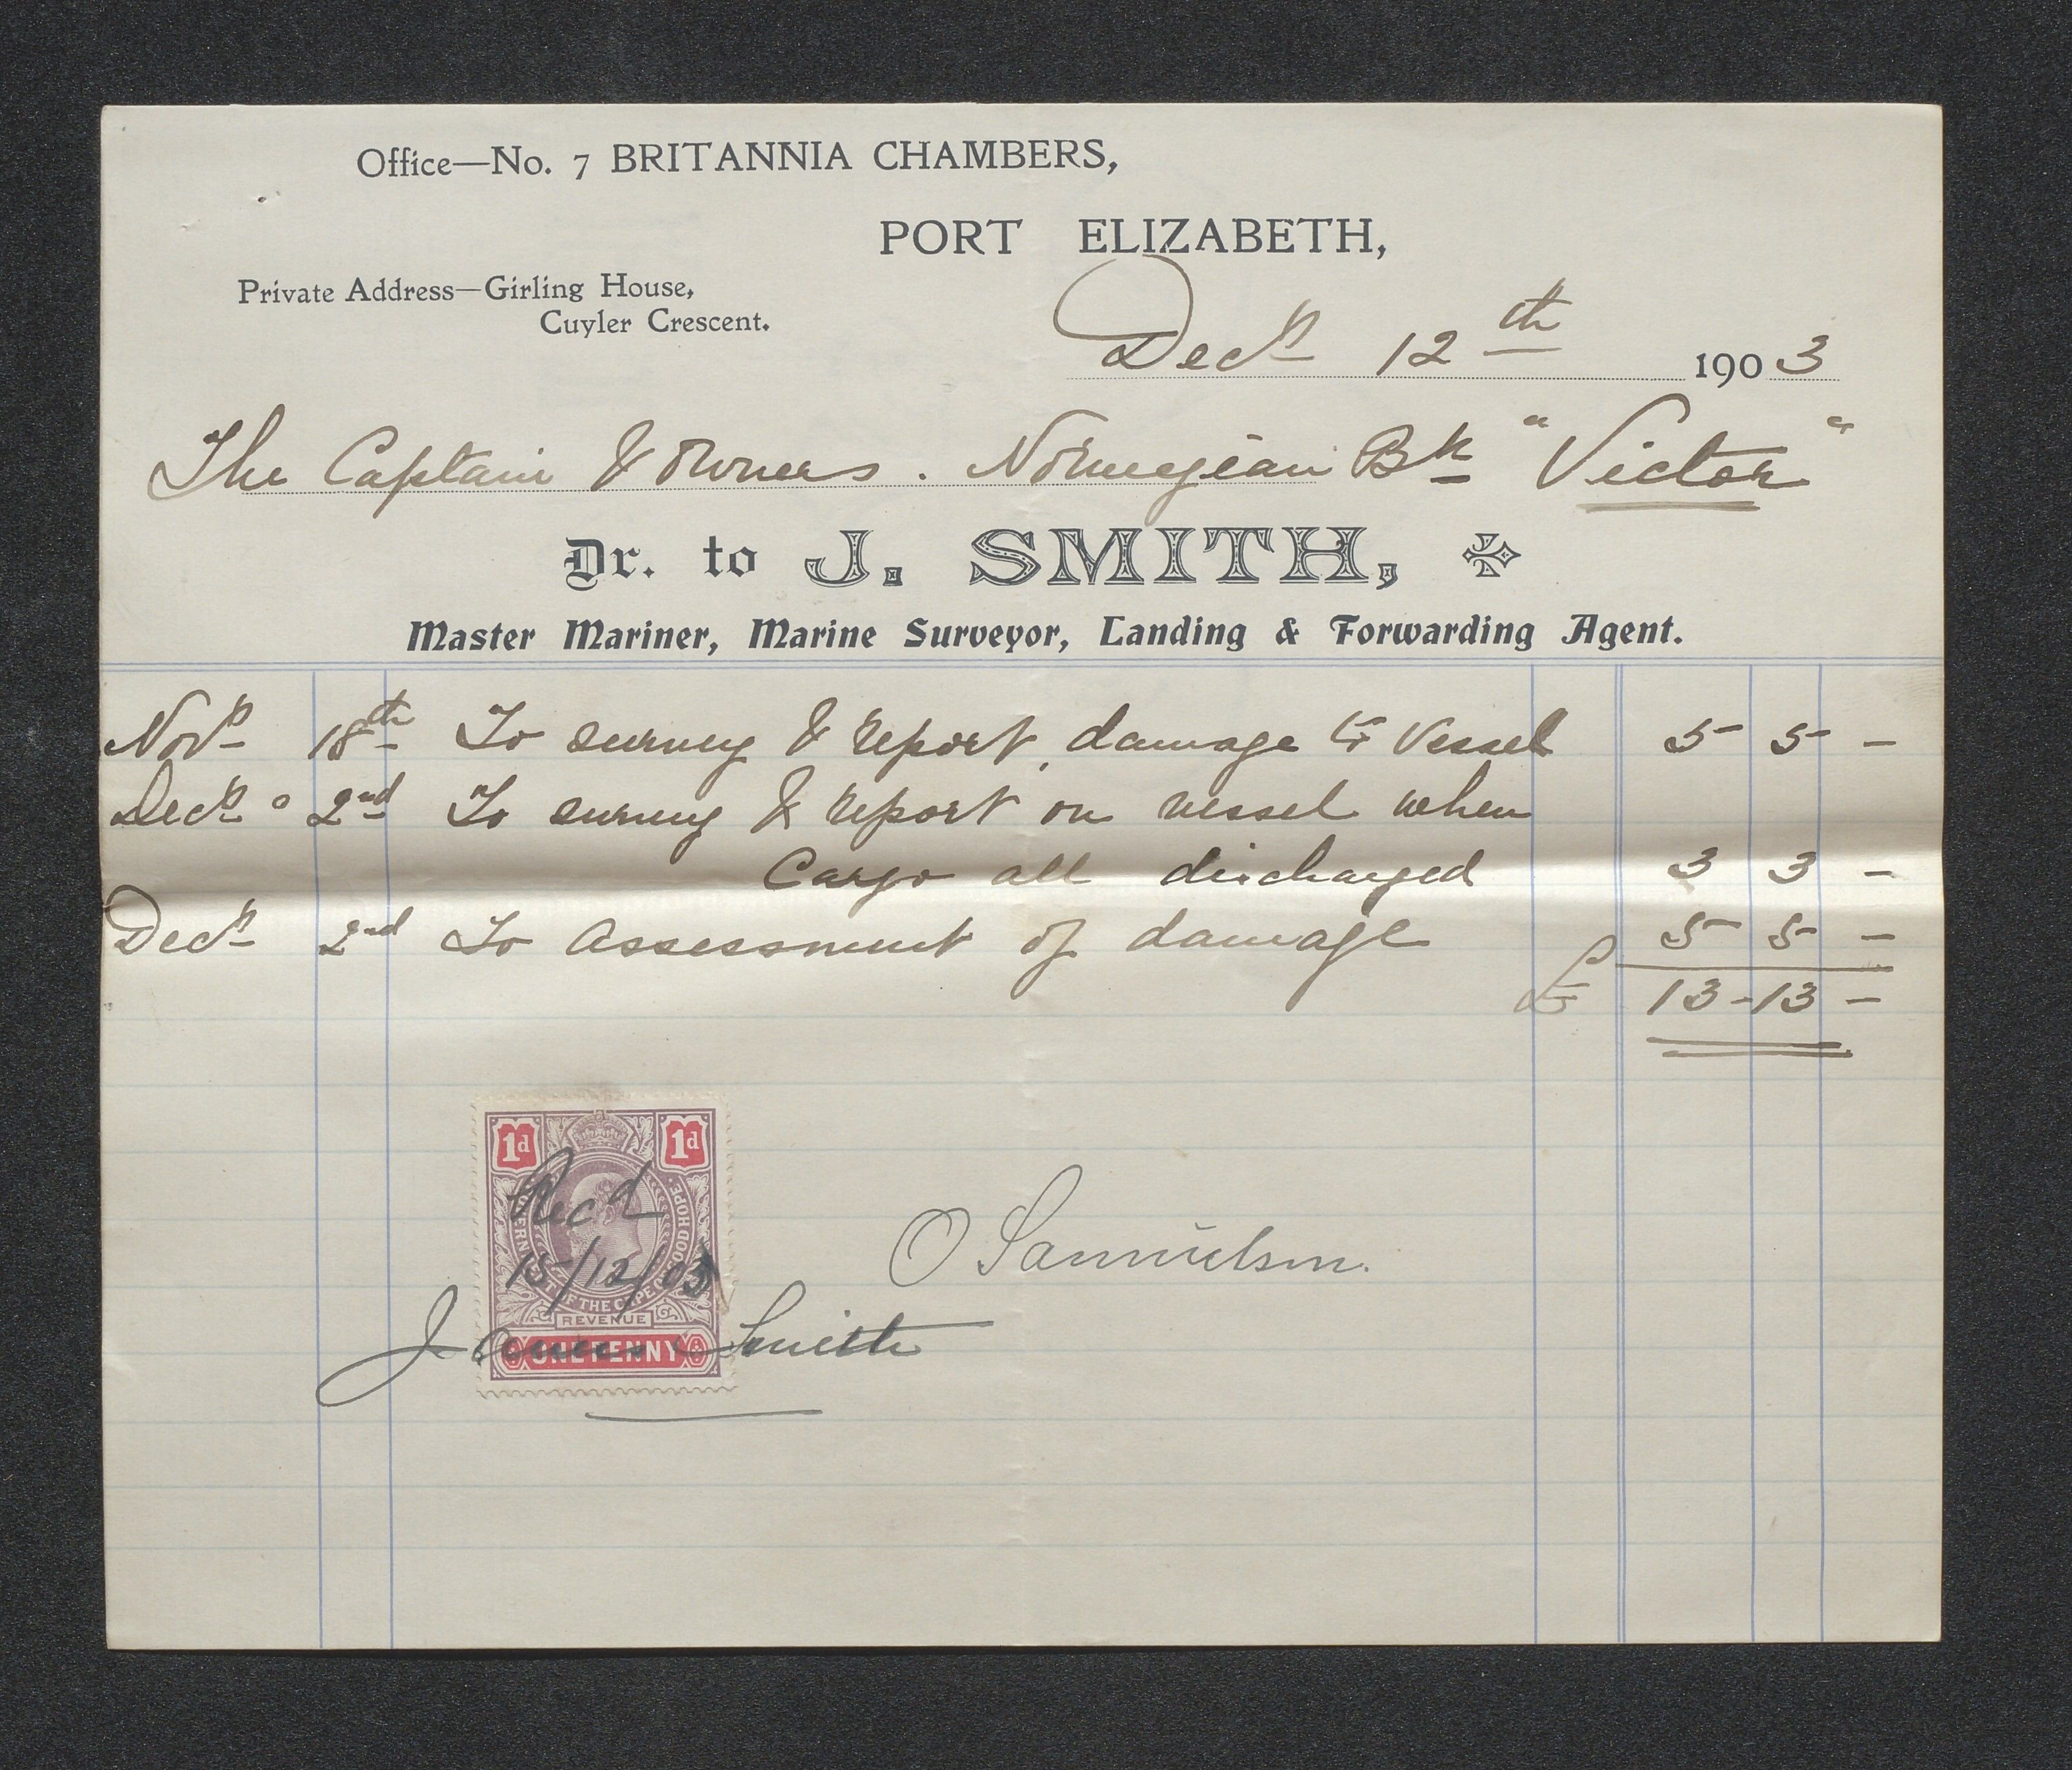 Office—No. 7 BRITANNIA CHAMBERS,
PORT ELIZABETH,
Private Address—Girling House,
Cuyler Crescent.
Decr 12th 1903
The Captain & Owners. Norwegian Bk "Victor"
Dr. to J. SMITH,
Master Mariner, Marine Surveyor, Landing & Forwarding Agent.
Novr 18th To survey & report, damage to Vessel 5 5 –
Decr 2nd To survey & report on vessel when
Cargo all discharged 3 3 –
Decr 2nd To Assessment of damage 5 5 –
£ 13-13 –
1d 1d
GOVERNMENT OF THE CAPE OF GOOD HOPE
Recd
15/12/03
REVENUE
ONE PENNY
James Smith
O Samuelsen.